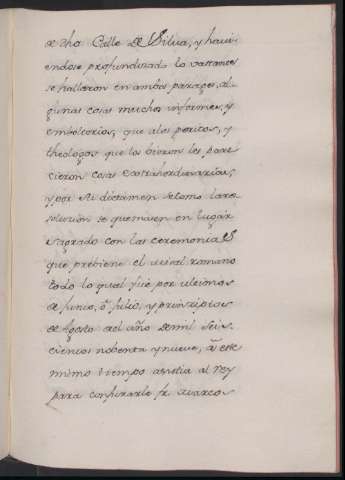 de dho Calle de Silua, y haui
endose profundizado lo vastante
se hallaron en ambos parages, al
gunas cosas muchos informes, y
embolcorios, que a los peritos, y
theologos que los bieron les pare
cieron cosas extrahordinarias,
y por su dictamen se tomo la re
solucion se quemasen en lugar
sagrado con las ceremonias
que prebiene el ritual romano
todo lo qual fue por ultimos
de Junio, ò Julio, y prinsipios
de Agosto del año de mil seis
cientos nobenta y nueve, à este
mismo tiempo asistia al rey
para conjurarle fr.